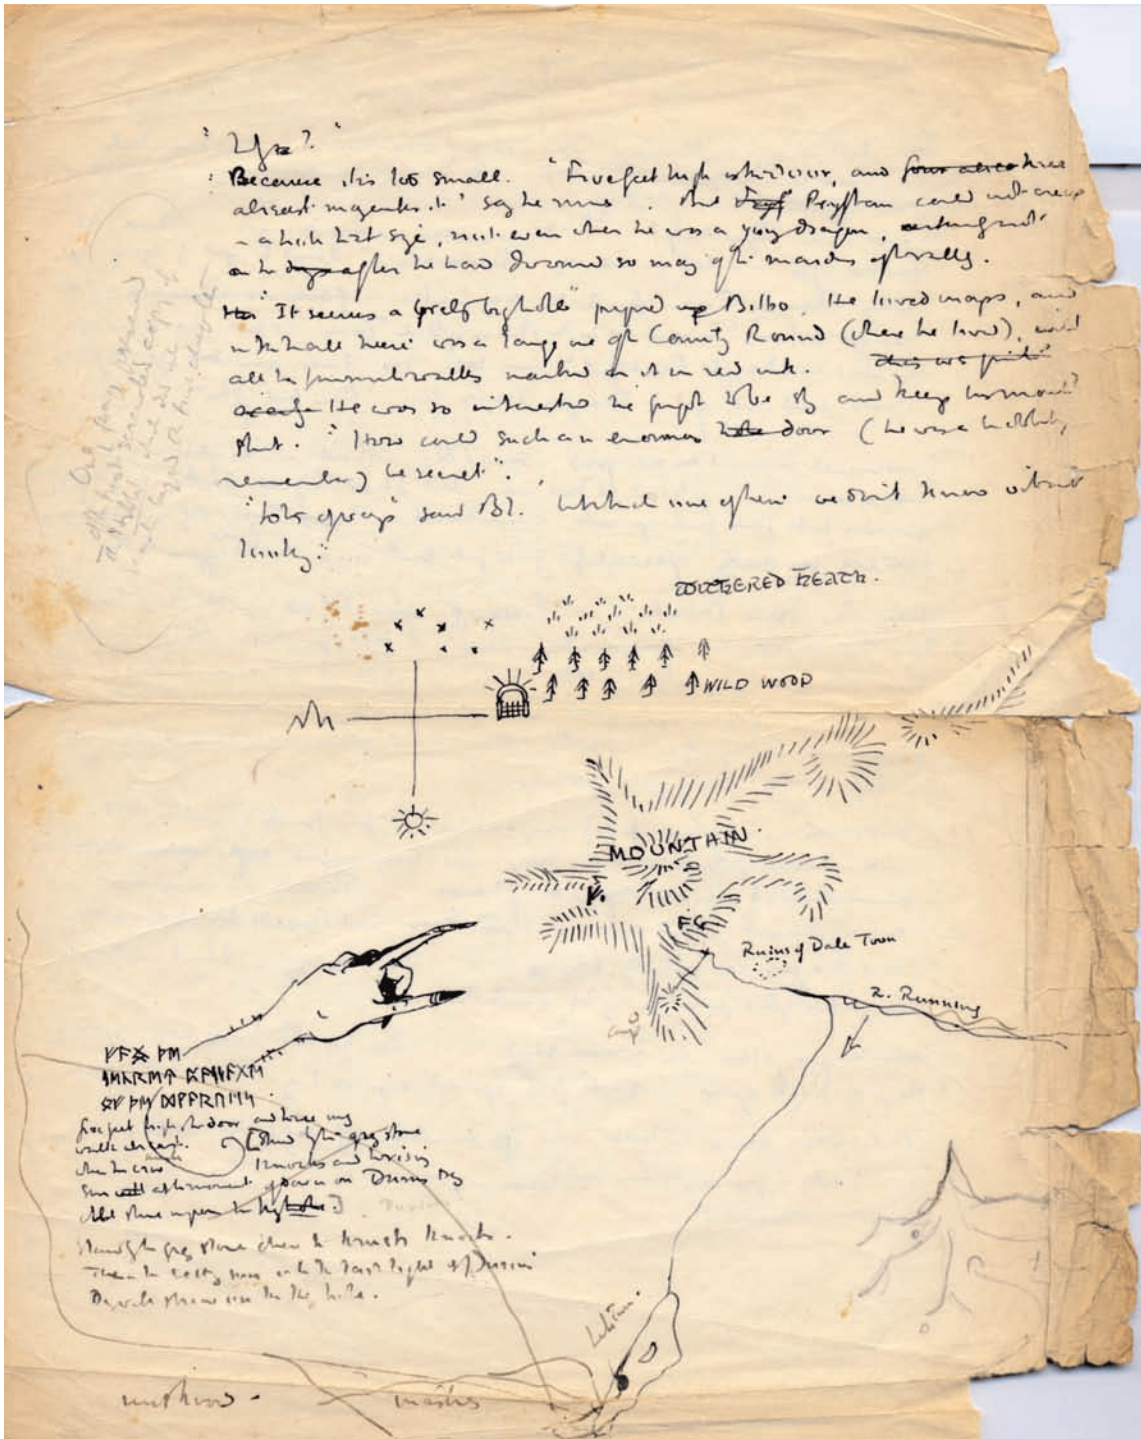 "Why?"
"Because it is too small. "Five feet high is the door, and four abreast three
abreast may enter it" say the runes. But Pryftan could not creep
in a hole that size, not even when he was a young dragon, certainly not
after he had devoured so many of the maidens of the valley.
"It seems a great big hole" piped up Bilbo. He loved maps, and
in the hall there was a large one of the County Round (where he lived), with
all his favourite walks marked on it in red ink. This was quite
He was so interested he forgot to be shy and keep his mouth
shut. "How could such an enormous hole door (he was a hobbit,
remember) be secret".
"Lots of ways" said Bl. Which one of them we don't know without
looking."
One
of first page
copy of
WITHERED HEATH.
WILD WOOD
MOUNTAIN.
ᚠ.
F.G
Ruins of Dale Town
R. Running
ᚠᚪᚾᚷ ᚦᛖ
ᛋᛖᚳᚱᛖᛏ ᛈᚪᛋᚪᚷᛖ
ᚩᚠ ᚦᛖ ᛞᚹᚪᚱᚢᛖᛋ.
five feet high is the door and three may
walk abreast. [Stand by the grey stone
when the crow knocks and the rising
sun will at the moment of dawn on Durin's Day
will shine upon the keyhole.]
Stand by the grey stone where the thrush knocks.
Then the setting sun with the last light of Durin's
Day will shine on the key hole.
Lake Town.
mirkwood -
marshes